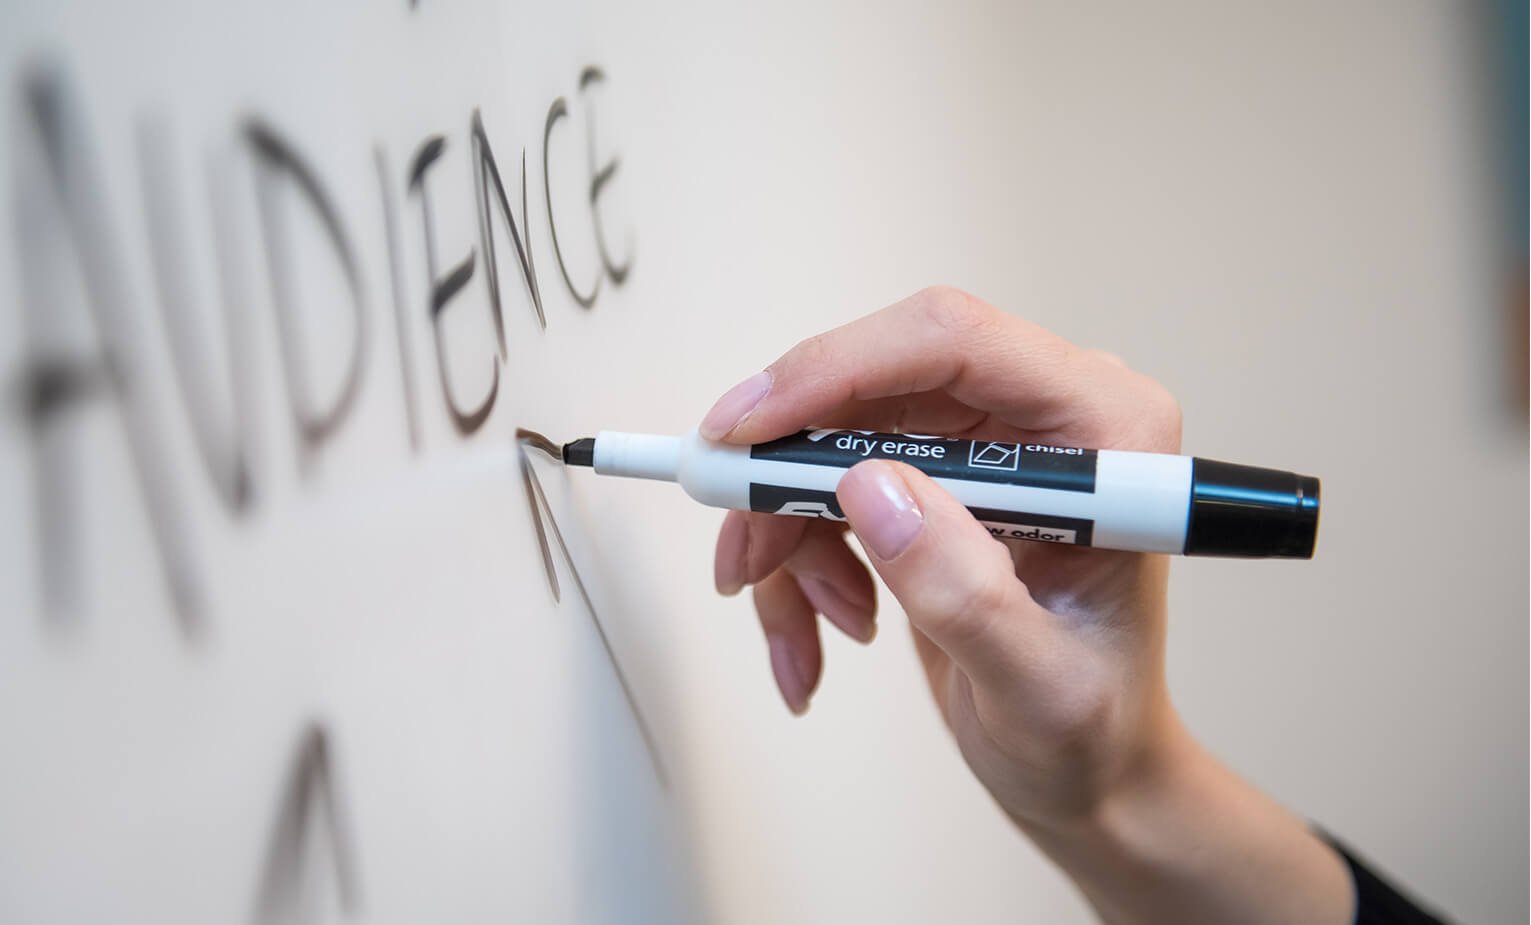 AUDIENCE
dry erase chisel
low odor